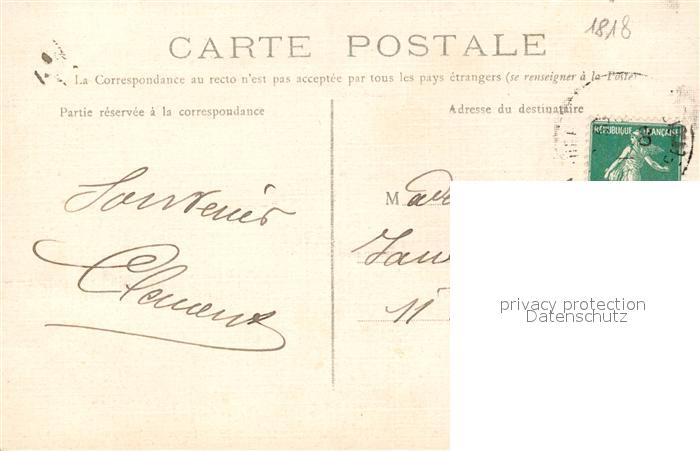 1818
CARTE POSTALE
La Correspondance au recto n'est pas acceptée par tous les pays étrangers (se renseigner à la Poste)
Partie réservée à la correspondance
Adresse du destinataire
RÉPUBLIQUE FRANÇAISE
Souvenir
Clement
M
11
privacy protection
Datenschutz